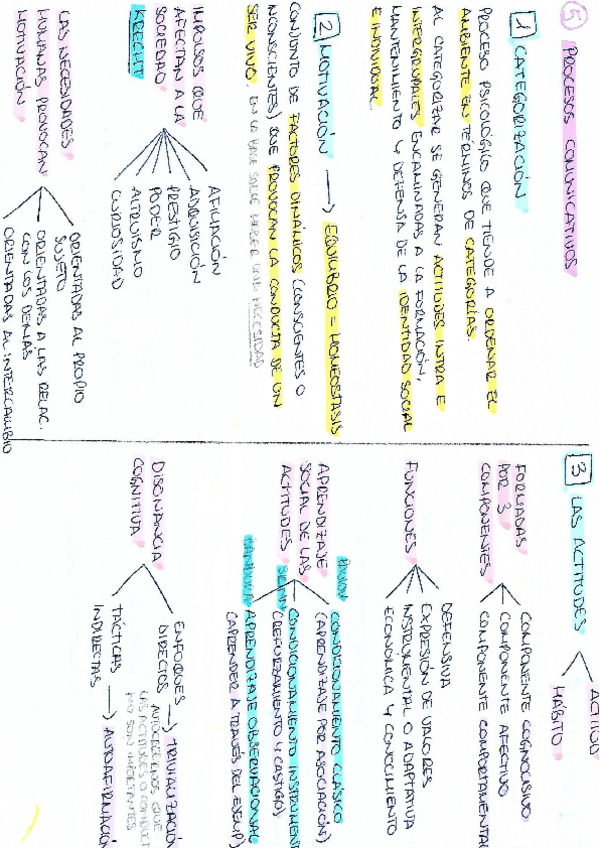 5 PROCESOS COMUNICATIVOS
1 CATEGORIZACIÓN
PROCESO PSICOLÓGICO QUE TIENDE A ORDENAR EL
AMBIENTE EN TÉRMINOS DE CATEGORÍAS.
AL CATEGORIZAR SE GENERAN ACTITUDES INTRA E
INTERGRUPALES ENCAMINADAS A LA FORMACIÓN,
MANTENIMIENTO Y DEFENSA DE LA IDENTIDAD SOCIAL
E INDIVIDUAL.
2 MOTIVACIÓN → EQUILIBRIO = HOMEOSTASIS
CONJUNTO DE FACTORES DINÁMICOS (CONSCIENTES O
INCONSCIENTES) QUE PROVOCAN LA CONDUCTA DE UN
SER VIVO. EN LA BASE SUELE HABER UNA NECESIDAD
IMPULSOS QUE
AFECTAN A LA
SOCIEDAD
KRECHT
AFILIACIÓN
ADQUISICIÓN
PRESTIGIO
PODER
ALTRUISMO
CURIOSIDAD
LAS NECESIDADES
HUMANAS PROVOCAN
MOTIVACIÓN
ORIENTADAS AL PROPIO
SUJETO
ORIENTADAS A LAS RELAC.
CON LOS DEMÁS
ORIENTADAS AL INTERCAMBIO
3 LAS ACTITUDES
ACTITUD
HÁBITO
FORMADAS
POR 3
COMPONENTES
COMPONENTE COGNOSCITIVO
COMPONENTE AFECTIVO
COMPONENTE COMPORTAMENTAL
FUNCIONES
DEFENSIVA
EXPRESIÓN DE VALORES
INSTRUMENTAL O ADAPTATIVA
ECONOMICA Y CONOCIMIENTO
APRENDIZAJE
SOCIAL DE LAS
ACTITUDES
PAVLOV CONDICIONAMIENTO CLÁSICO
(APRENDIZAJE POR ASOCIACIÓN)
CONDICIONAMIENTO INSTRUMENT
(REFORZAMIENTO Y CASTIGO)
BANDURA APRENDIZAJE OBSERVACIONAL
(APRENDER A TRAVÉS DEL EJEMP)
DISONANCIA
COGNITIVA
ENFOQUES → TRIVIALIZACIÓN
DIRECTOS
LAS ACTITUDES O CONDUCT
NO SON IMPORTANTES
TÁCTICAS → AUTOAFIRMACIÓN
INDIRECTAS